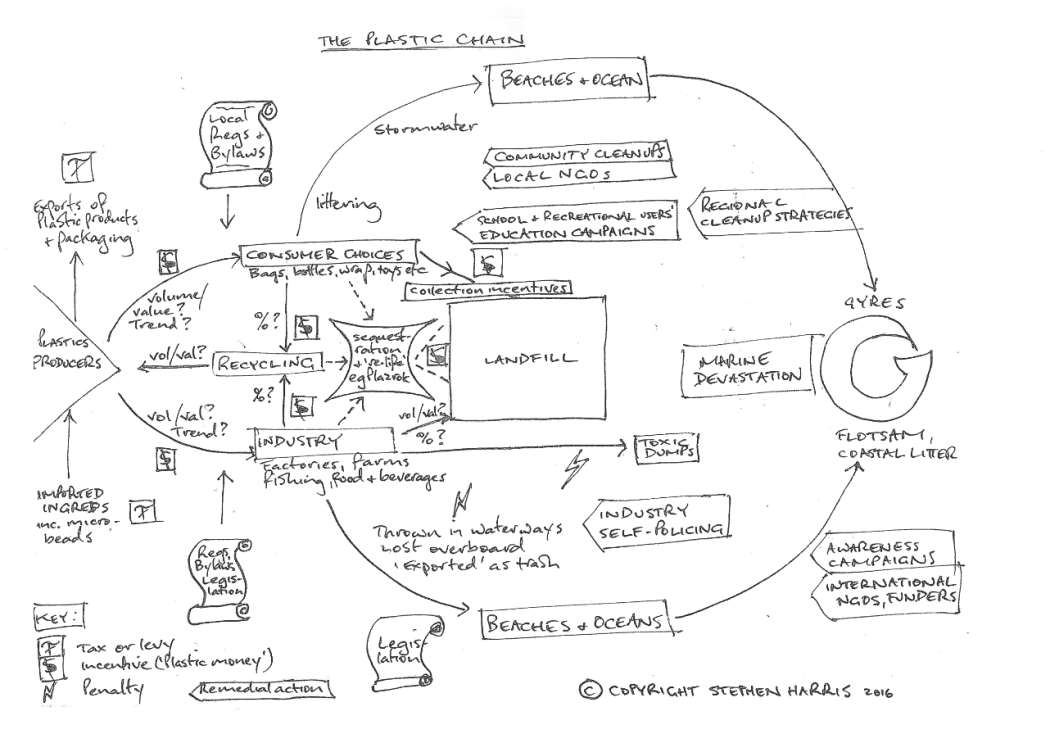 THE PLASTIC CHAIN
BEACHES + OCEAN
Stormwater
Local
Regs +
Bylaws
COMMUNITY CLEANUPS
LOCAL NGOS
T
Exports of
Plastic products
+ packaging
littering
SCHOOL + RECREATIONAL USERS'
EDUCATION CAMPAIGNS
REGIONAL
CLEANUP STRATEGIES
$
CONSUMER CHOICES
Bags, bottles, wrap, toys etc
$
collection incentives
volume/
value?
Trend?
%?
$
GYRES
PLASTICS
PRODUCERS
vol/val?
RECYCLING
sequest-
ration
+ 're-life'
eg Plazrok
$
LANDFILL
MARINE
DEVASTATION
%?
$
vol/val?
Trend?
$
vol/val?
%?
INDUSTRY
Factories, farms
Fishing, Food + beverages
TOXIC
DUMPS
FLOTSAM,
COASTAL LITTER
IMPORTED
INGREDS
inc. micro-
beads
T
Thrown in waterways
Lost overboard
'Exported' as trash
INDUSTRY
SELF-POLICING
Regs,
Bylaws,
Legis-
lation
AWARENESS
CAMPAIGNS
INTERNATIONAL
NGOS, FUNDERS
BEACHES + OCEANS
Legis-
lation
KEY:
T Tax or levy
$ Incentive ('Plastic money')
Penalty
Remedial action
© COPYRIGHT STEPHEN HARRIS 2016